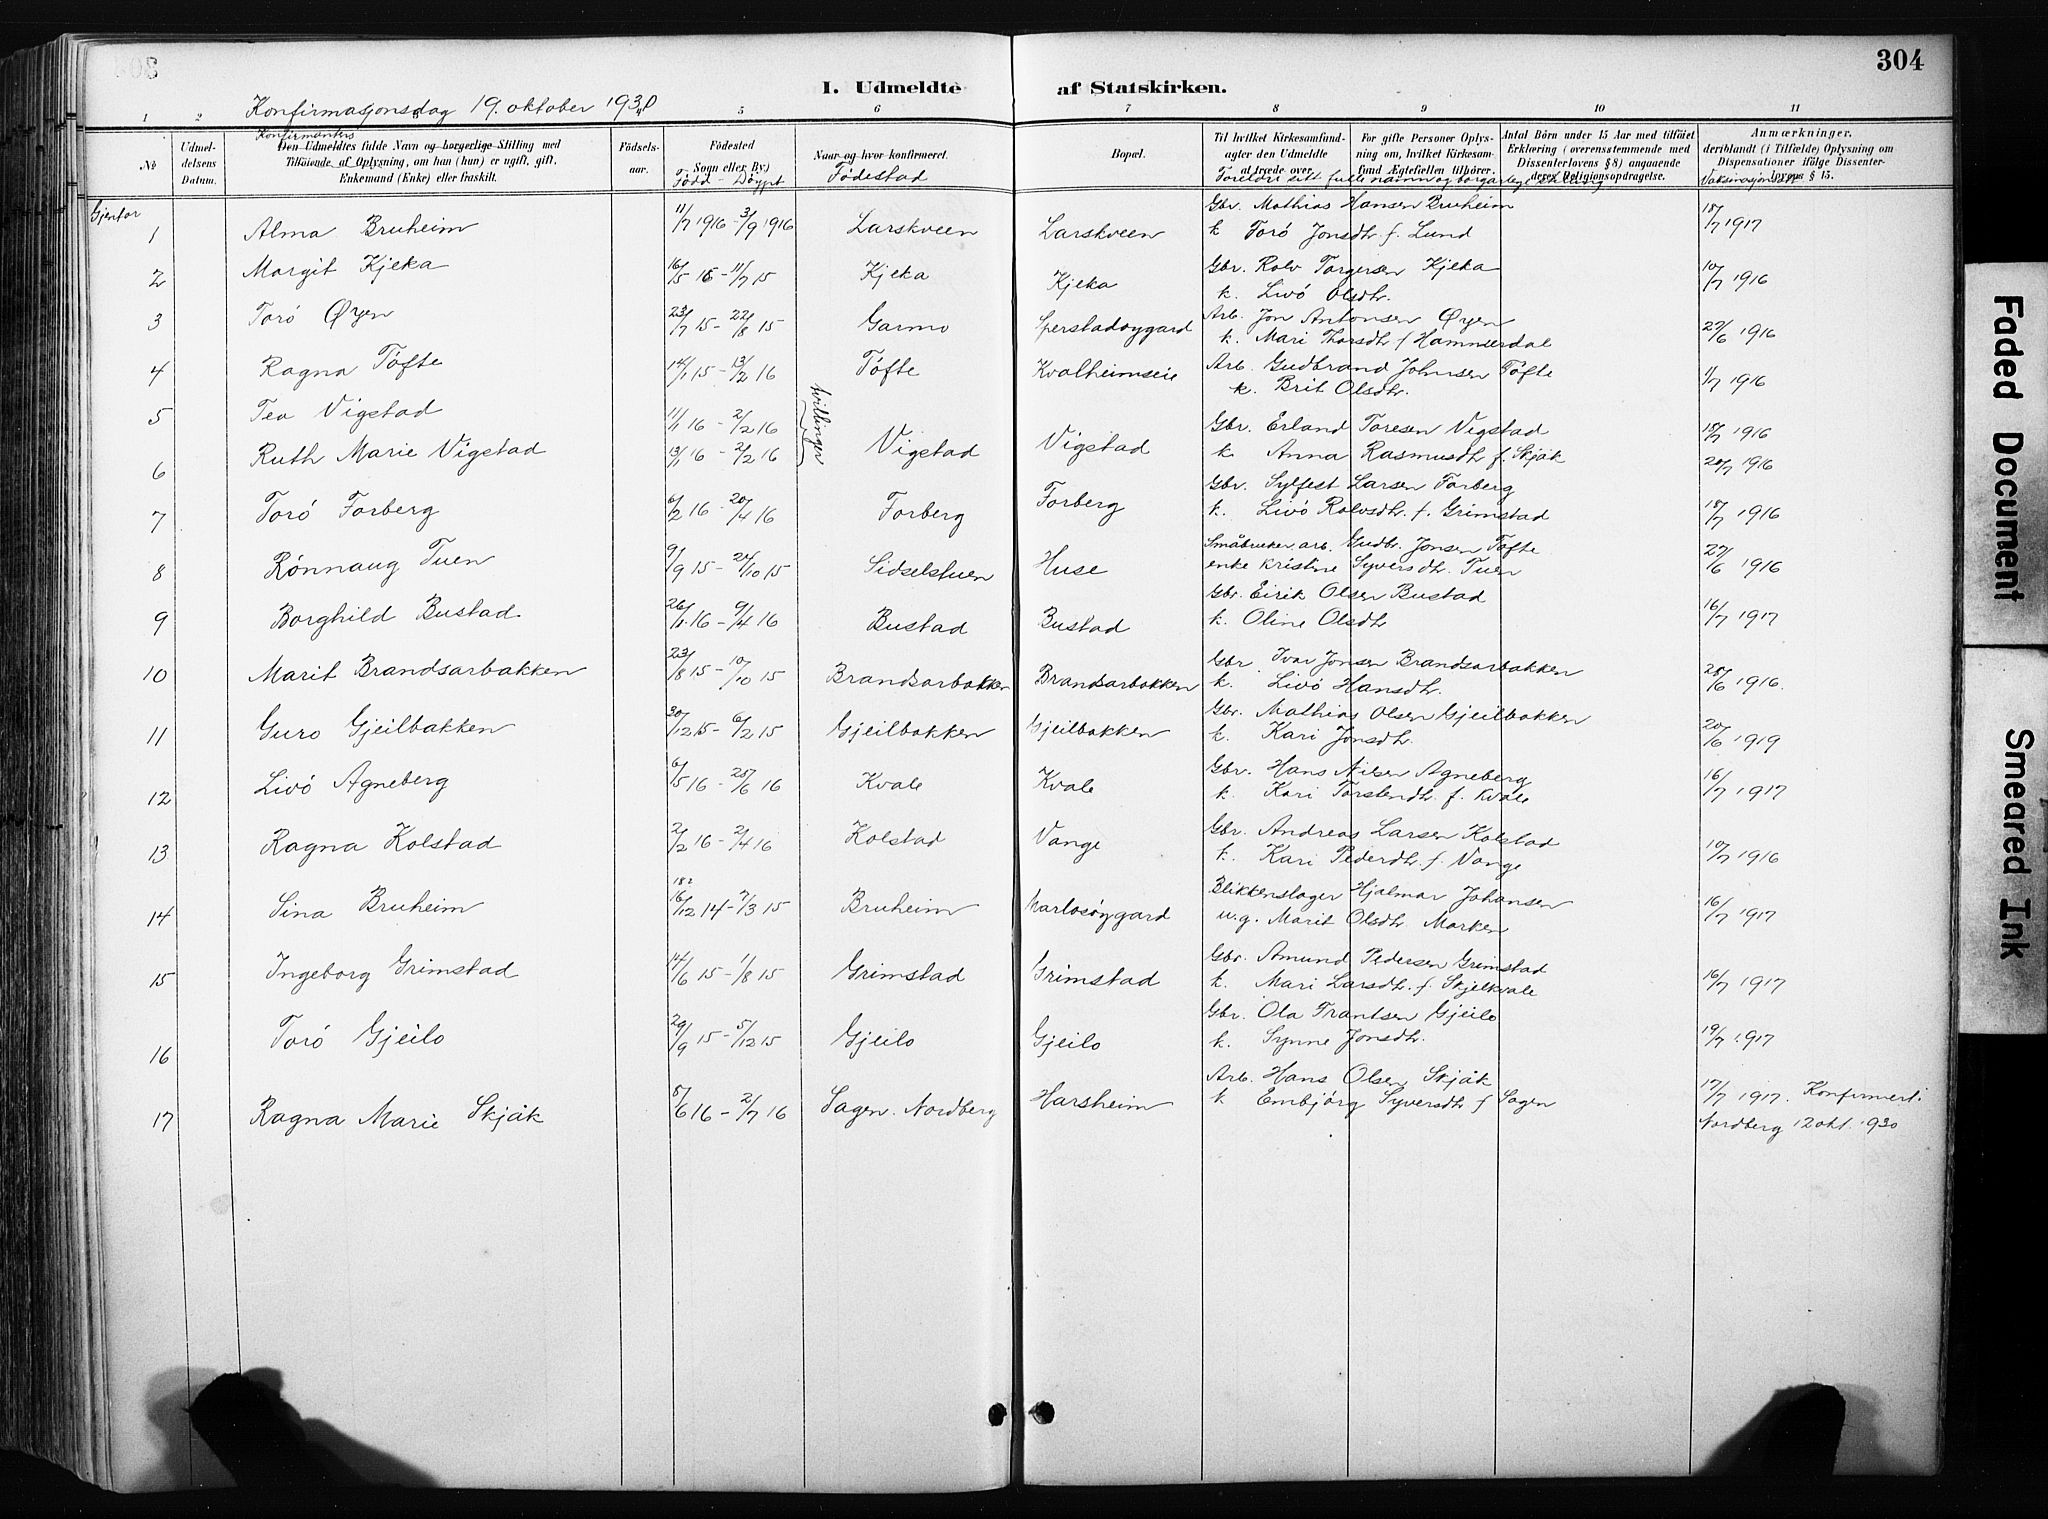 304
I. Udmeldte af Statskirken.
Konfirmasjonsdag 19. oktober 1930
1 2 5 6 7 8 9 10 11
№
Udmel-
delsens
Datum.
Konfirmantens
Den Udmeldtes fulde Navn og borgerlige Stilling med
Tilføiende af Oplysning, om han (hun) er ugift, gift,
Enkemand (Enke) eller fraskilt.
Födsels-
aar.
Födested
(Sogn eller By)
Född - Döypt
Naar og hvor konfirmeret.
Födestad
Bopæl.
Til hvilket Kirkesamfund-
agter den Udmeldte
at træde over.
For gifte Personer Oplys-
ning om, hvilket Kirkesam-
fund Ægtefællen tilhörer.
Foreldre sitt fulle namn og borgarlege stilling
Antal Börn under 15 Aar med tilföiet
Erklæring (overensstemmende med
Dissenterlovens § 8) angaaende
deres Religionsopdragelse.
Anmærkninger,
deriblandt (i Tilfælde) Oplysning om
Dispensationer ifölge Dissenter-
lovens § 15.
Gjentor
1 Alma Bruheim 11/7 1916 - 3/9 1916 Larskveen Larskveen Gbr. Mathias Hansen Bruheim 18/7 1917
k Toró Jonsdtr. f. Lund
2 Margit Kjeka 16/5 15 - 11/7 15 Kjeka Kjeka Gbr. Rolv Torgersen Kjeka 10/7 1916
k. Livó Olsdtr.
3 Toró Øyen 23/7 15 - 22/8 15 Garmo Sperstadoygard Arb. Jon Antonsen Øyen 27/6 1916
k. Mari Thorsdtr. f Hammerdal
4 Ragna Tófte 14/1 15 - 13/2 16 Tófte Kvalheimseie Arb. Gudbrand Johnsen Tófte 1/7 1916
k. Brit Olsdtr.
5 Tea Vigstad 11/1 16 - 2/2 16 tvillinger Vigstad Vigstad Gbr. Erland Toresen Vigstad 18/7 1916
6 Ruth Marie Vigstad 13/1 16 - 2/2 16 k Anna Rasmusdtr f. Skjåk 20/7 1916
7 Toró Forberg 6/2 16 - 20/4 16 Forberg Forberg Gbr. Sylfest Larsen Forberg 18/7 1916
k. Livó Rolvsdtr. f. Grimstad
8 Rónnaug Tuen 9/9 15 - 24/10 15 Sidselstuen Huse Småbruker, arb. Gudbr. Jonsen Tófte 27/6 1916
enke Kristine Syversdtr. Tuen
9 Borghild Bustad 26/1 16 - 9/4 16 Bustad Bustad Gbr. Eirik Olsen Bustad 16/7 1917
k. Oline Olsdtr
10 Marit Brandsarbakken 23/8 15 - 10/10 15 Brandsarbakken Brandsarbakken Gbr. Ivar Jonsen Brandsarbakken 28/6 1916.
k. Livó Hansdtr.
11 Guro Gjeilbakken 30/12 15 - 6/2 15 Gjeilbakken Gjeilbakken Gbr. Mathias Olsen Gjeilbakken 20/6 1919
k. Kari Jonsdtr.
12 Livó Agneberg 6/5 16 - 25/6 16 Kvale Kvale Gbr. Hans Nilsen Agneberg 16/7 1917
k. Kari Torstendtr. f. Kvale
13 Ragna Kolstad 2/2 16 - 2/4 16 Kolstad Vange Gbr. Andreas Larsen Kolstad 10/7 1916
k. Kari Pederdtr. f. Vange
14 Sina Bruheim 16/12 14 - 7/3 15 Bruheim Marlosóygard Blikkenslager Hjalmar Johansen 16/7 1917
u.g. Marit Olsdtr Marken
15 Ingeborg Grimstad 14/6 15 - 1/8 15 Grimstad Grimstad Gbr. Amund Pedersen Grimstad 16/7 1917
k. Mari Larsdtr. f. Skjelkvale
16 Toró Gjeilo 29/9 15 - 5/12 15 Gjeilo Gjeilo Gbr. Ola Frantsen Gjeilo 19/7 1917
k. Synne Jonsdtr.
17 Ragna Marie Skjåk 5/6 16 - 2/7 16 Sagen. Nordberg Harsheim Arb. Hans Olsen Skjåk 17/7 1917. Konfirmert i
k Embjórg Syversdtr f Sagen Nordberg 12 okt. 1930
Faded Document
Smeared Ink